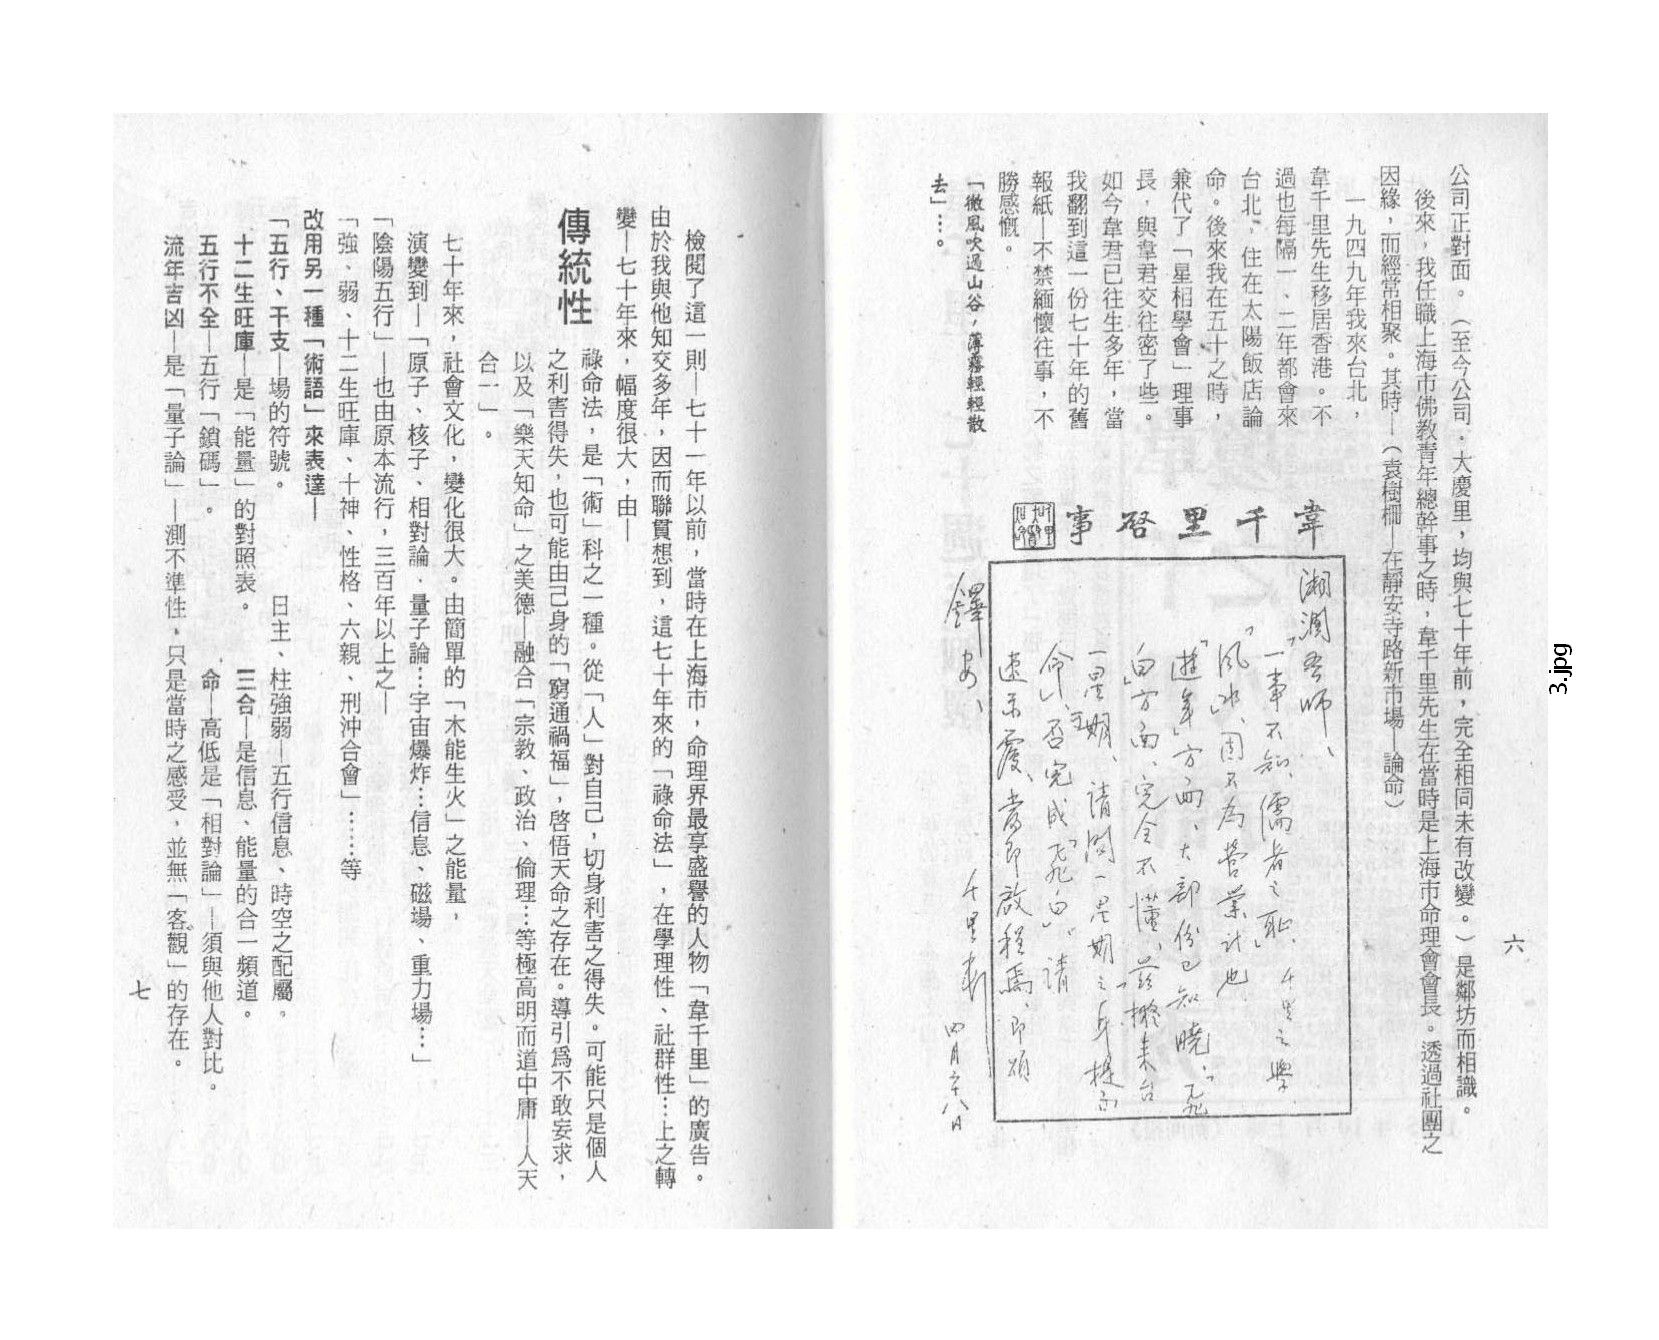 公司正對面。（至今公司．大慶里，均與七十年前，完全相同未有改變。）是鄰坊而相識。
後來，我任職上海市佛教青年總幹事之時，韋千里先生在當時是上海市命理會會長。透過社團之
因緣，而經常相聚。其時—（袁樹柵—在靜安寺路新市場—論命）
一九四九年我來台北，
韋千里先生移居香港。不
過也每隔一、二年都會來
台北、住在太陽飯店論
命。後來我在五十之時，
兼代了「星相學會」理事
長，與韋君交往密了些。
如今韋君已往生多年，當
我翻到這一份七十年的舊
報紙—不禁緬懷往事，不
勝感慨。
「微風吹過山谷，薄霧輕輕散
去」…。
韋千里啓事
吾師、
「一事不知、儒者之恥、千里之學、
「風水、固不為營業計也、
遊年」方面、大部份已知曉、飛
白方面、完全不懂、茲擬來台
一星期、請閣一星期之
命、否完成「飛白」、請
速示覆、當即啟程焉、即頌
鐸安、
千里
四月二十八日
六
檢閱了這一則—七十一年以前，當時在上海市，命理界最享盛譽的人物「韋千里」的廣告。
由於我與他知交多年，因而聯貫想到，這七十年來的「祿命法」，在學理性、社群性…上之轉
變—七十年來，幅度很大，由—
傳統性
祿命法，是「術」科之一種。從「人」對自己，切身利害之得失。可能只是個人
之利害得失，也可能由己身的「窮通禍福」，啓悟天命之存在。導引爲不敢妄求，
以及「樂天知命」之美德—融合「宗教、政治、倫理…等極高明而道中庸—人天
合一」。
七十年來，社會文化，變化很大。由簡單的「木能生火」之能量，
演變到—「原子、核子、相對論．量子論…宇宙爆炸…信息、磁場、重力場…」
「陰陽五行」—也由原本流行，三百年以上之—
「強、弱、十二生旺庫、十神、性格、六親、刑沖合會」……等
改用另一種「術語」來表達—
「五行、干支—場的符號。 日主、柱強弱—五行信息、時空之配屬。
十二生旺庫—是「能量」的對照表。 三合—是信息、能量的合一頻道。
五行不全—五行「鎖碼」。 命—高低是「相對論」—須與他人對比。
流年吉凶—是「量子論」—測不準性，只是當時之感受，並無「客觀」的存在。
七
3.jpg